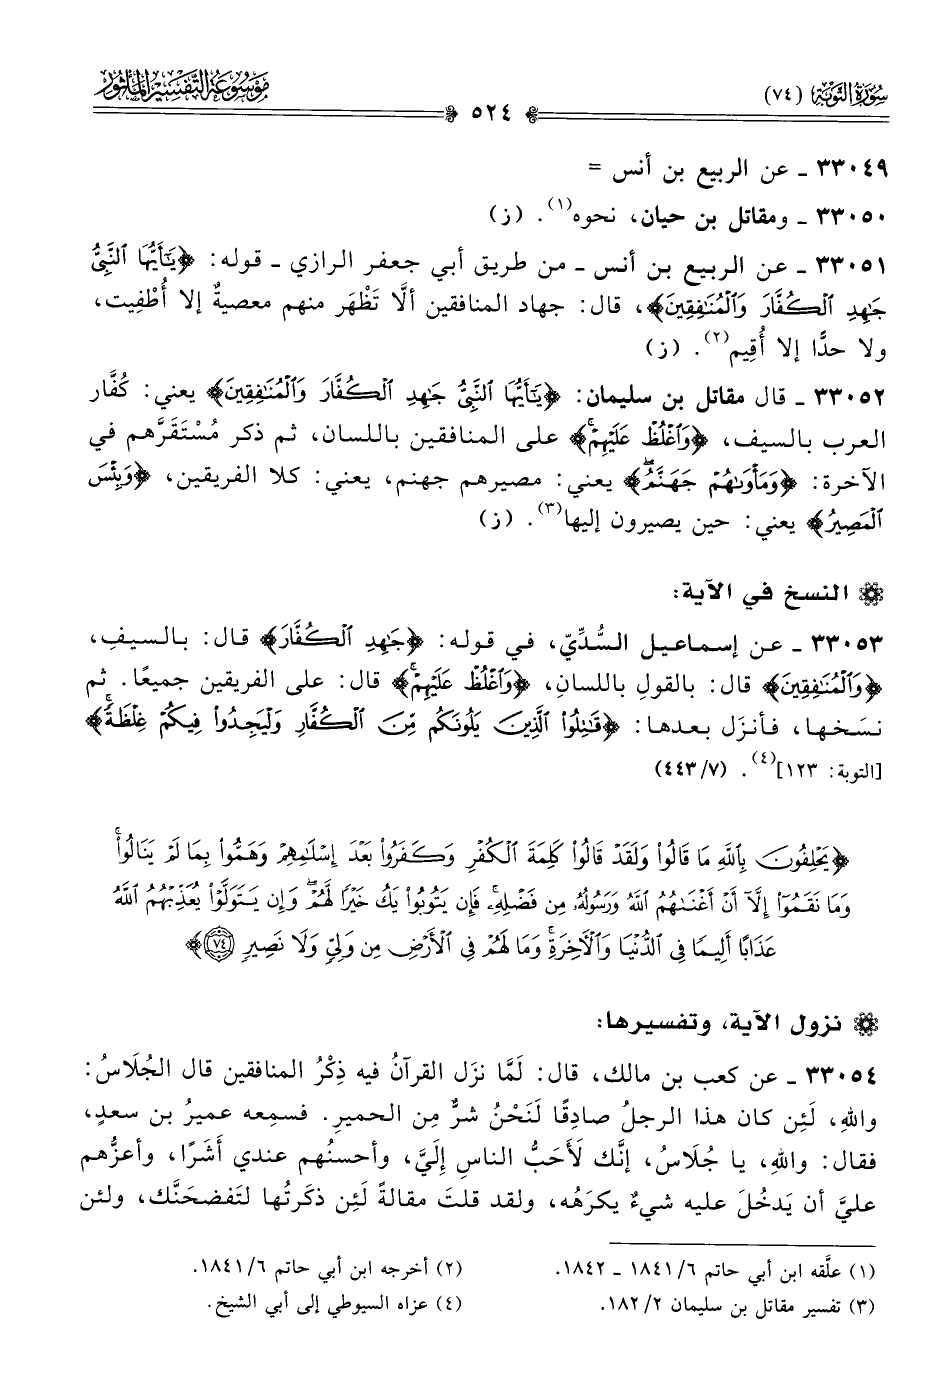 سُورَةُ التَّوبَةِ (٧٤)
٥٢٤
مَوْسُوعَةُ التَّفْسِيرِ المَأْثُورِ
٣٣٠٤٩ ـ عن الربيع بن أنس =
٣٣٠٥٠ ـ ومقاتل بن حيان، نحوه(١). (ز)
٣٣٠٥١ ـ عن الربيع بن أنس ـ من طريق أبي جعفر الرازي ـ قوله: ﴿يَٰٓأَيُّهَا ٱلنَّبِىُّ
جَٰهِدِ ٱلْكُفَّارَ وَٱلْمُنَٰفِقِينَ﴾، قال: جهاد المنافقين ألَّا تَظْهَر منهم معصيةٌ إلا أُطْفِيت،
ولا حدًّا إلا أُقِيم(٢). (ز)
٣٣٠٥٢ ـ قال مقاتل بن سليمان: ﴿يَٰٓأَيُّهَا ٱلنَّبِىُّ جَٰهِدِ ٱلْكُفَّارَ وَٱلْمُنَٰفِقِينَ﴾ يعني: كُفَّار
العرب بالسيف، ﴿وَٱغْلُظْ عَلَيْهِمْ﴾ على المنافقين باللسان، ثم ذكر مُسْتَقَرَّهم في
الآخرة: ﴿وَمَأْوَىٰهُمْ جَهَنَّمُ﴾ يعني: مصيرهم جهنم، يعني: كلا الفريقين، ﴿وَبِئْسَ
ٱلْمَصِيرُ﴾ يعني: حين يصيرون إليها(٣). (ز)
النسخ في الآية:
٣٣٠٥٣ ـ عن إسماعيل السُّدِّيّ، في قوله: ﴿جَٰهِدِ ٱلْكُفَّارَ﴾ قال: بالسيفِ،
﴿وَٱلْمُنَٰفِقِينَ﴾ قال: بالقولِ باللسانِ، ﴿وَٱغْلُظْ عَلَيْهِمْ﴾ قال: على الفريقين جميعًا. ثم
نسَخها، فأنزَل بعدها: ﴿قَٰتِلُوا۟ ٱلَّذِينَ يَلُونَكُم مِّنَ ٱلْكُفَّارِ وَلْيَجِدُوا۟ فِيكُمْ غِلْظَةً﴾
[التوبة: ١٢٣](٤). (٤٤٣/٧)
﴿يَحْلِفُونَ بِٱللَّهِ مَا قَالُوا۟ وَلَقَدْ قَالُوا۟ كَلِمَةَ ٱلْكُفْرِ وَكَفَرُوا۟ بَعْدَ إِسْلَٰمِهِمْ وَهَمُّوا۟ بِمَا لَمْ يَنَالُوا۟
وَمَا نَقَمُوٓا۟ إِلَّآ أَنْ أَغْنَىٰهُمُ ٱللَّهُ وَرَسُولُهُۥ مِن فَضْلِهِۦ فَإِن يَتُوبُوا۟ يَكُ خَيْرًا لَّهُمْ وَإِن يَتَوَلَّوْا۟ يُعَذِّبْهُمُ ٱللَّهُ
عَذَابًا أَلِيمًا فِى ٱلدُّنْيَا وَٱلْءَاخِرَةِ وَمَا لَهُمْ فِى ٱلْأَرْضِ مِن وَلِىٍّ وَلَا نَصِيرٍ ٧٤﴾
نزول الآية، وتفسيرها:
٣٣٠٥٤ ـ عن كعب بن مالك، قال: لَمَّا نزَل القرآنُ فيه ذِكْرُ المنافقين قال الجُلَاسُ:
واللهِ، لَئِن كان هذا الرجلُ صادِقًا لَنَحْنُ شرٌّ مِن الحميرِ. فسمِعه عميرُ بن سعدٍ،
فقال: واللهِ، يا جُلَاسُ، إنَّك لَأَحَبُّ الناسِ إِلَيَّ، وأحسنُهم عندي أَثَرًا، وأعزُّهم
عليَّ أن يَدخُلَ عليه شيءٌ يكرَهُه، ولقد قلتَ مقالةً لَئِن ذكَرتُها لتَفضحَنَّك، ولئن
(١) علَّقه ابن أبي حاتم ١٨٤١/٦ ـ ١٨٤٢.
(٢) أخرجه ابن أبي حاتم ١٨٤١/٦.
(٣) تفسير مقاتل بن سليمان ١٨٢/٢.
(٤) عزاه السيوطي إلى أبي الشيخ.